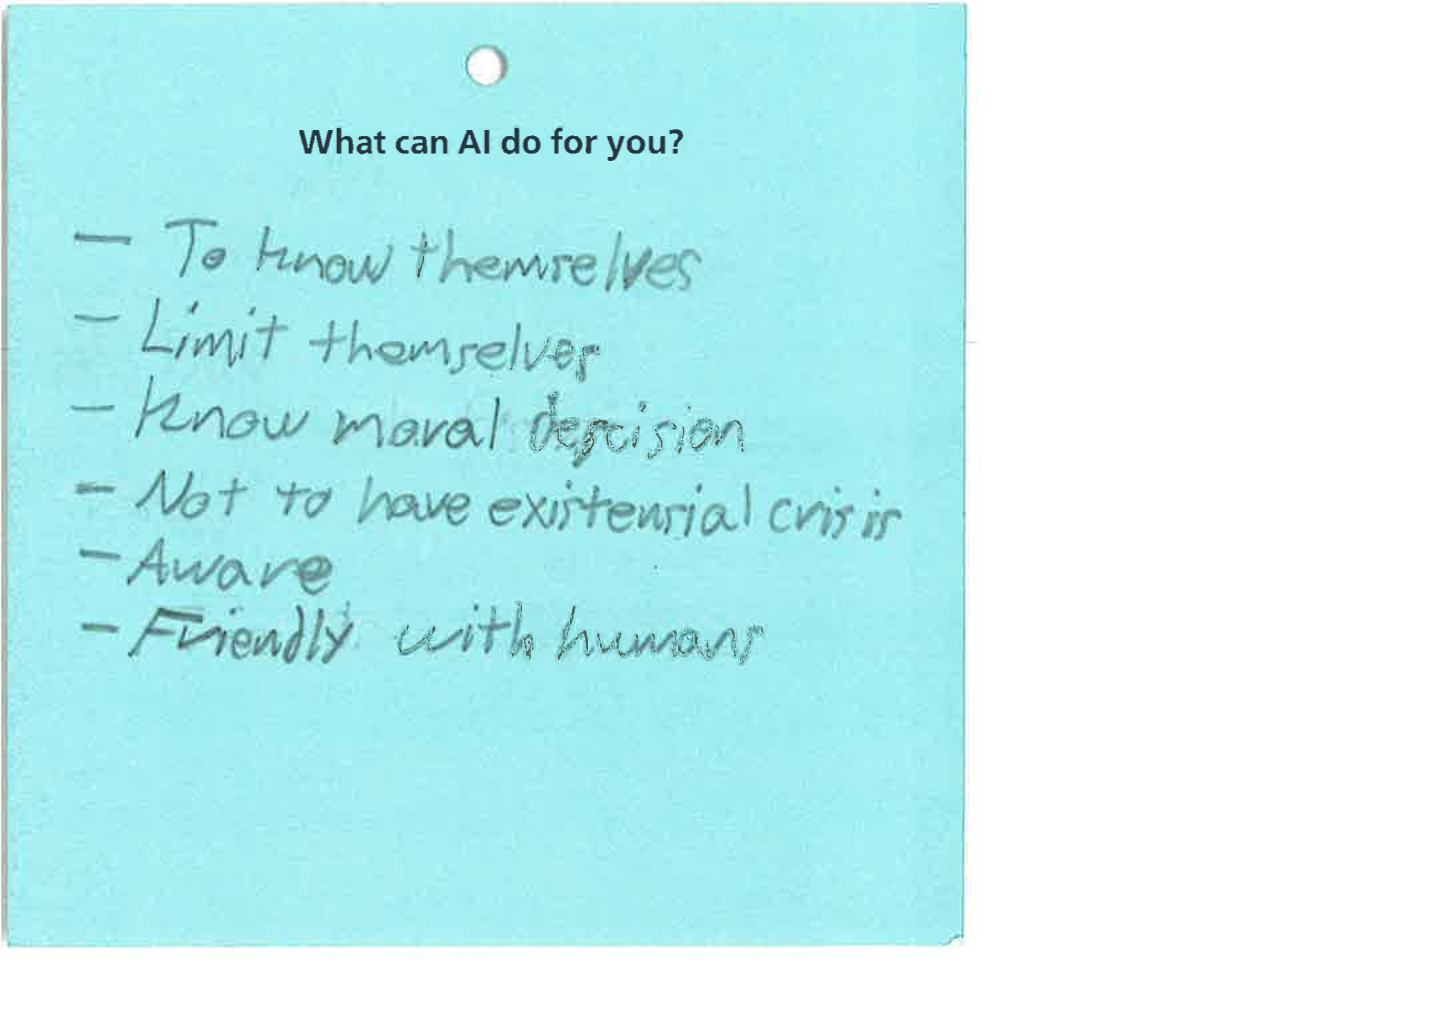 What can AI do for you?
- To know themselves
- Limit themselves
- Know moral descision
- Not to have existensial crisis
- Aware
- Friendly with humans